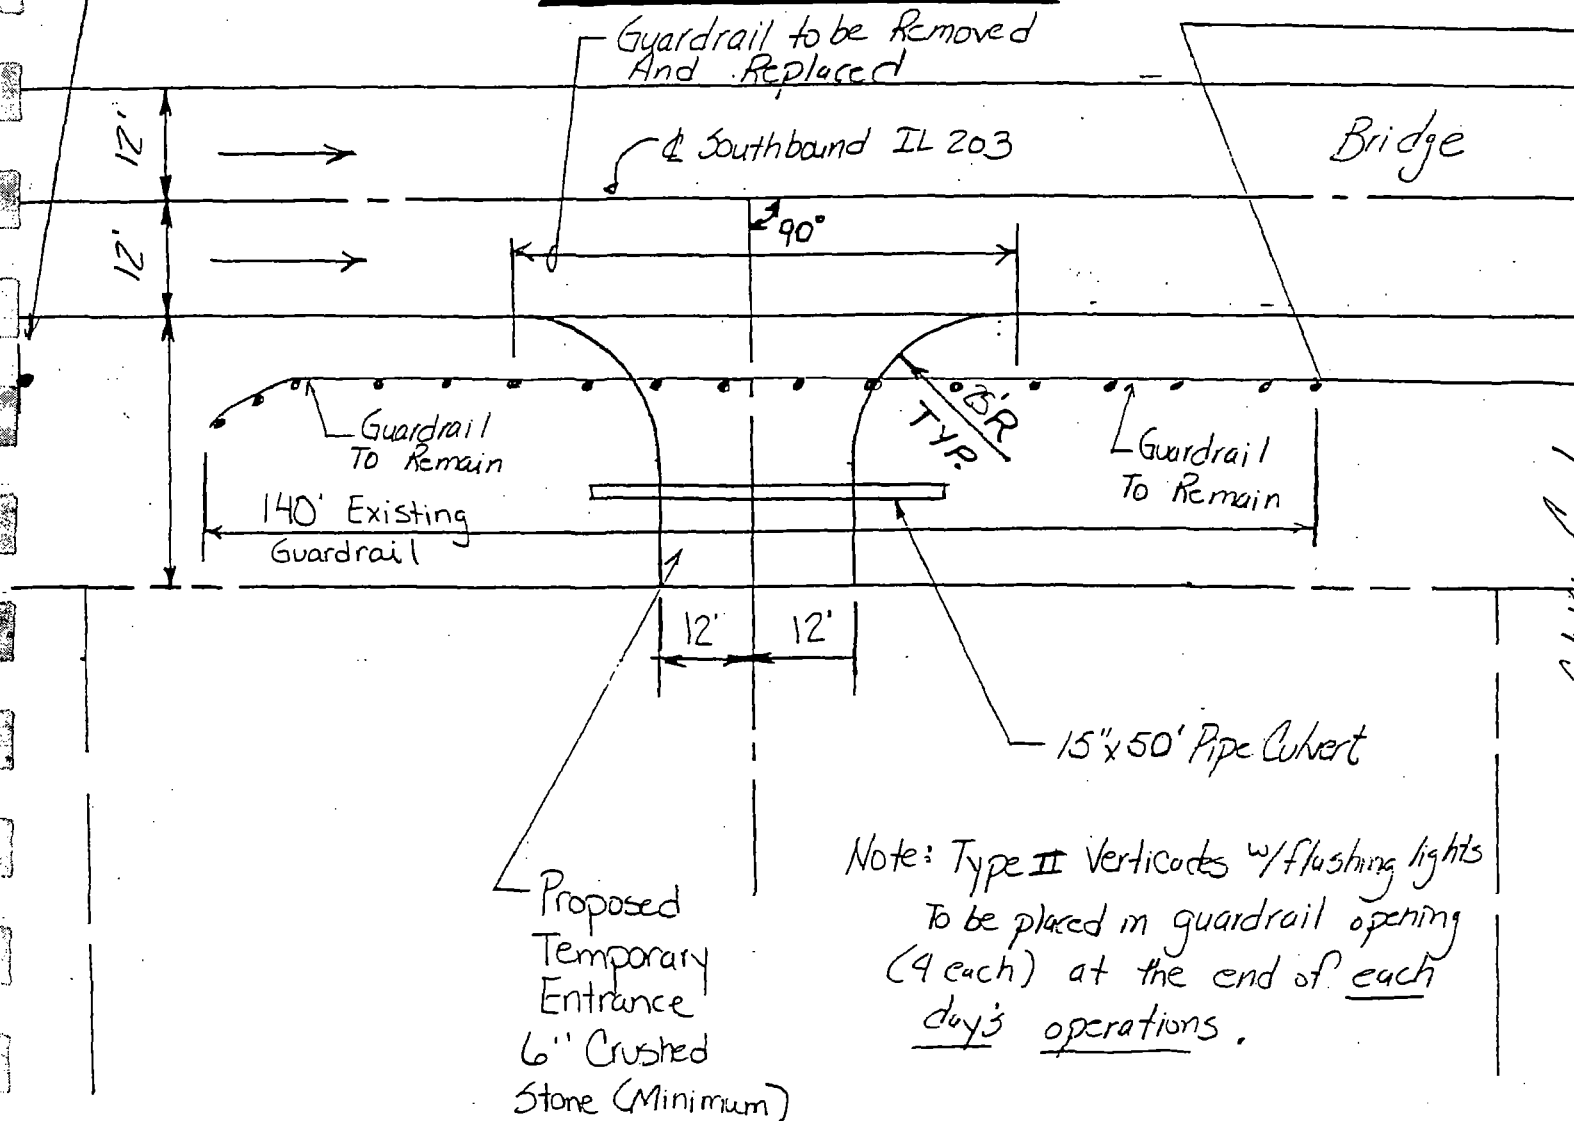 Guardrail to be Removed
And Replaced
12'
℄ Southbound IL 203
Bridge
12'
90°
25'R
TYP.
Guardrail
To Remain
Guardrail
To Remain
140' Existing
Guardrail
12'
12'
15"x50' Pipe Culvert
Proposed
Temporary
Entrance
6" Crushed
Stone (Minimum)
Note: Type II Verticades w/flashing lights
To be placed in guardrail opening
(4 each) at the end of each
day's operations.